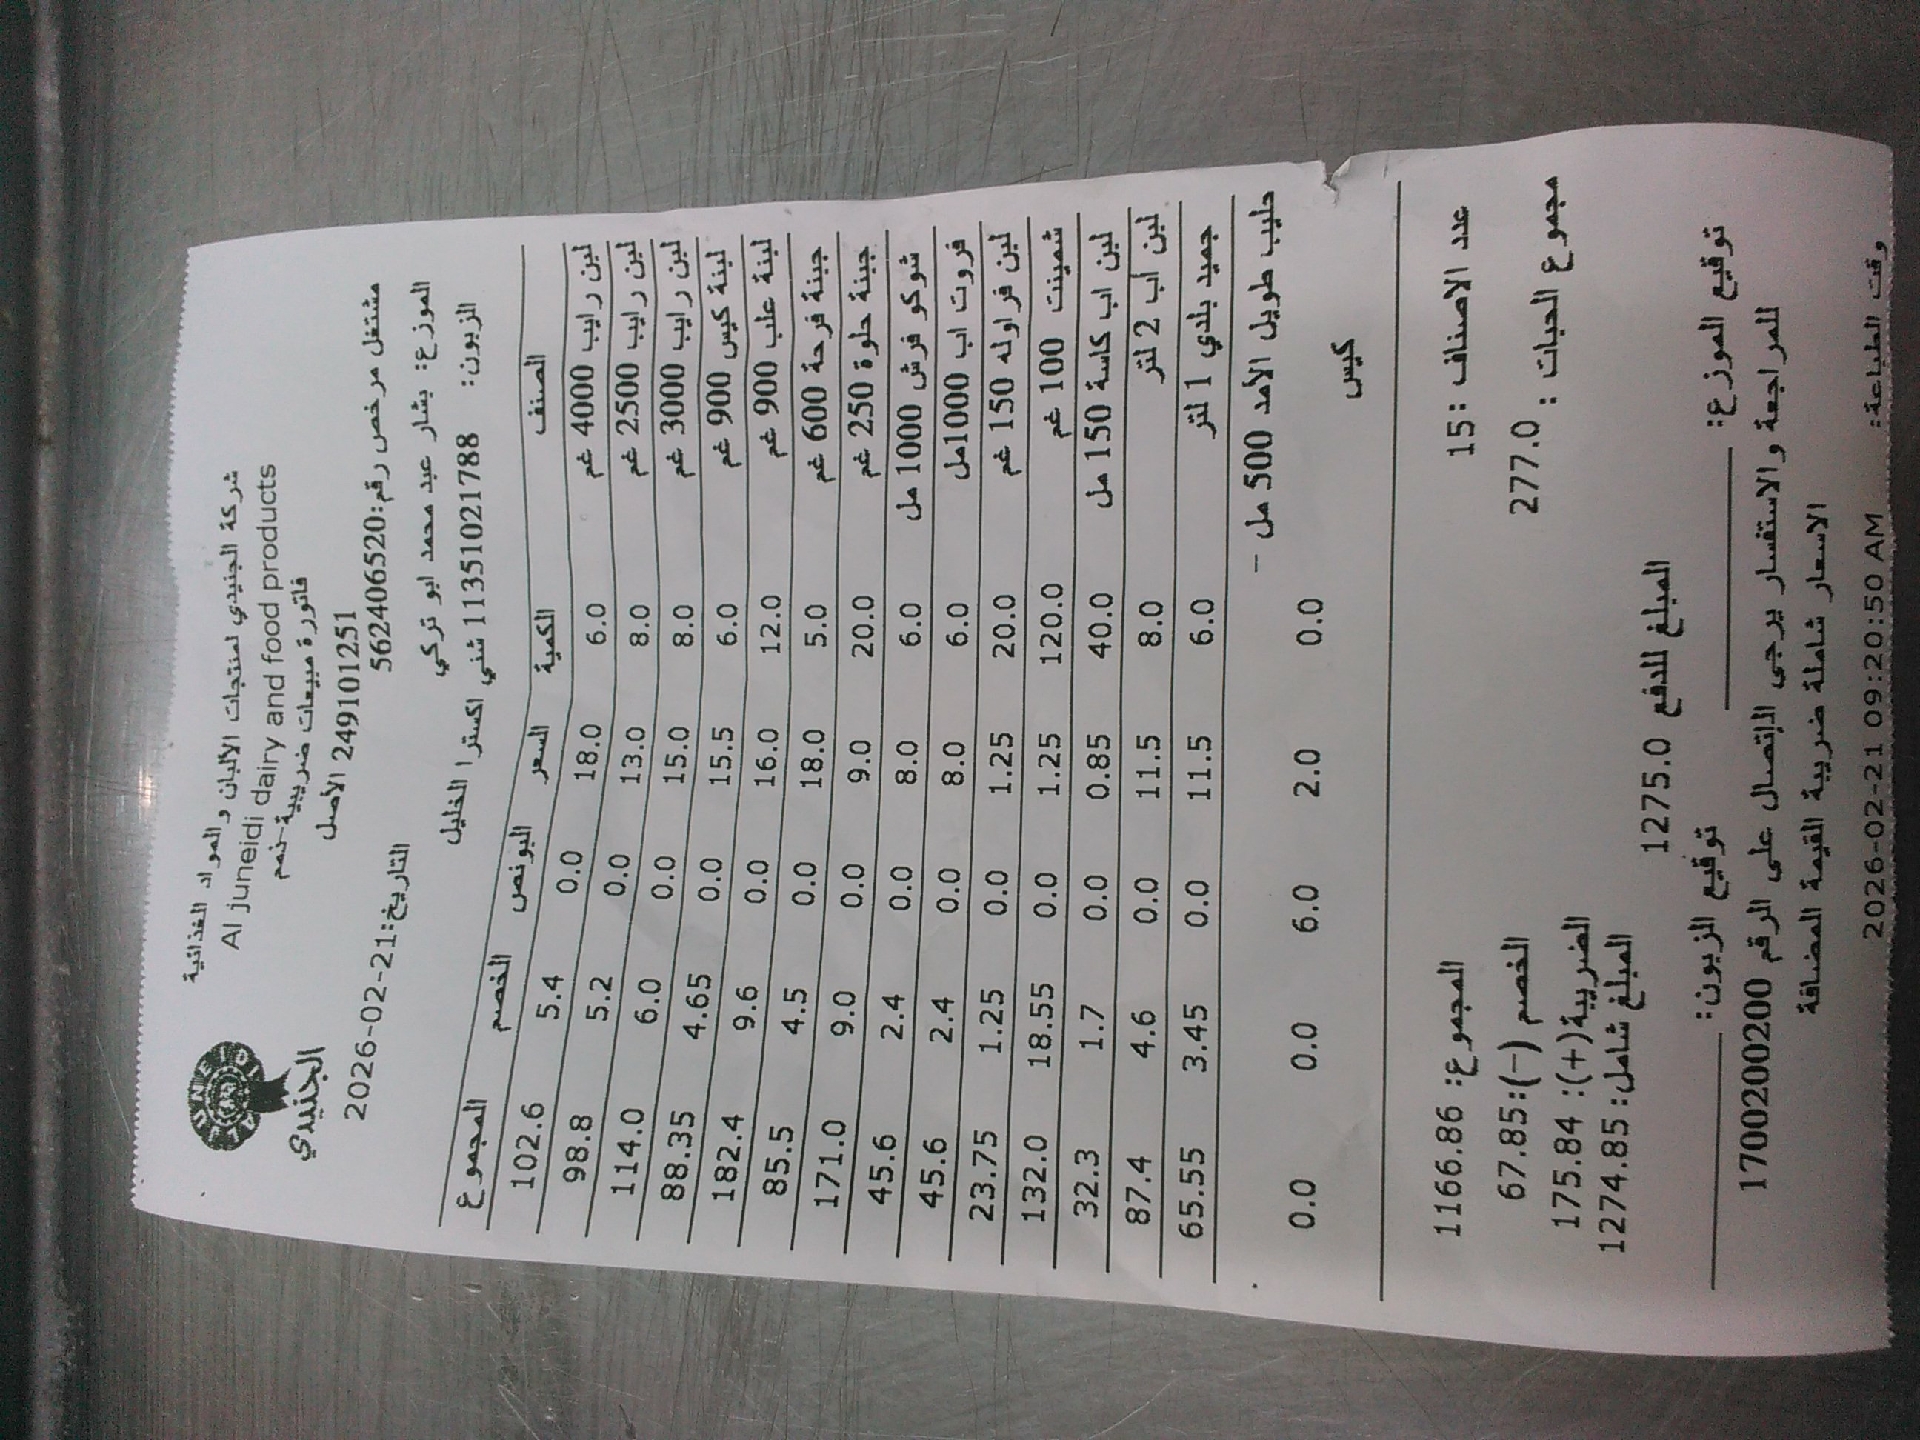 شركة الجنيدي لمنتجات الالبان والمواد الغذائية
Al juneidi dairy and food products
فاتورة مبيعات ضريبية-نعم
249101251 الأصل
الجنيدي
مشتغل مرخص رقم:562406520
التاريخ:2026-02-21
الموزع: بشار عبد محمد ابو تركي
الزبون: 11351021788 شني اكسترا الخليل
الصنف الكمية السعر البونص الخصم المجموع
لبن رايب 4000 غم 6.0 18.0 0.0 5.4 102.6
لبن رايب 2500 غم 8.0 13.0 0.0 5.2 98.8
لبن رايب 3000 غم 8.0 15.0 0.0 6.0 114.0
لبنة كيس 900 غم 6.0 15.5 0.0 4.65 88.35
لبنة علب 900 غم 12.0 16.0 0.0 9.6 182.4
جبنة فرحة 600 غم 5.0 18.0 0.0 4.5 85.5
جبنة حلوة 250 غم 20.0 9.0 0.0 9.0 171.0
شوكو فرش 1000 مل 6.0 8.0 0.0 2.4 45.6
فروت اب 1000مل 6.0 8.0 0.0 2.4 45.6
لبن فراوله 150 غم 20.0 1.25 0.0 1.25 23.75
شمينت 100 غم 120.0 1.25 0.0 18.55 132.0
لبن اب كاسة 150 مل 40.0 0.85 0.0 1.7 32.3
لبن أب 2 لتر 8.0 11.5 0.0 4.6 87.4
جميد بلدي 1 لتر 6.0 11.5 0.0 3.45 65.55
حليب طويل الأمد 500 مل -
0.0 2.0 6.0 0.0 0.0
كيس
عدد الاصناف :15 المجموع: 1166.86
مجموع الحبات : 277.0 الخصم (-):67.85
الضريبة(+): 175.84
المبلغ شامل: 1274.85
المبلغ للدفع 1275.0
توقيع الموزع: توقيع الزبون:
للمراجعة والاستفسار يرجى الإتصال على الرقم 1700200200
الاسعار شاملة ضريبة القيمة المضافة
وقت الطباعة: 2026-02-21 09:20:50 AM